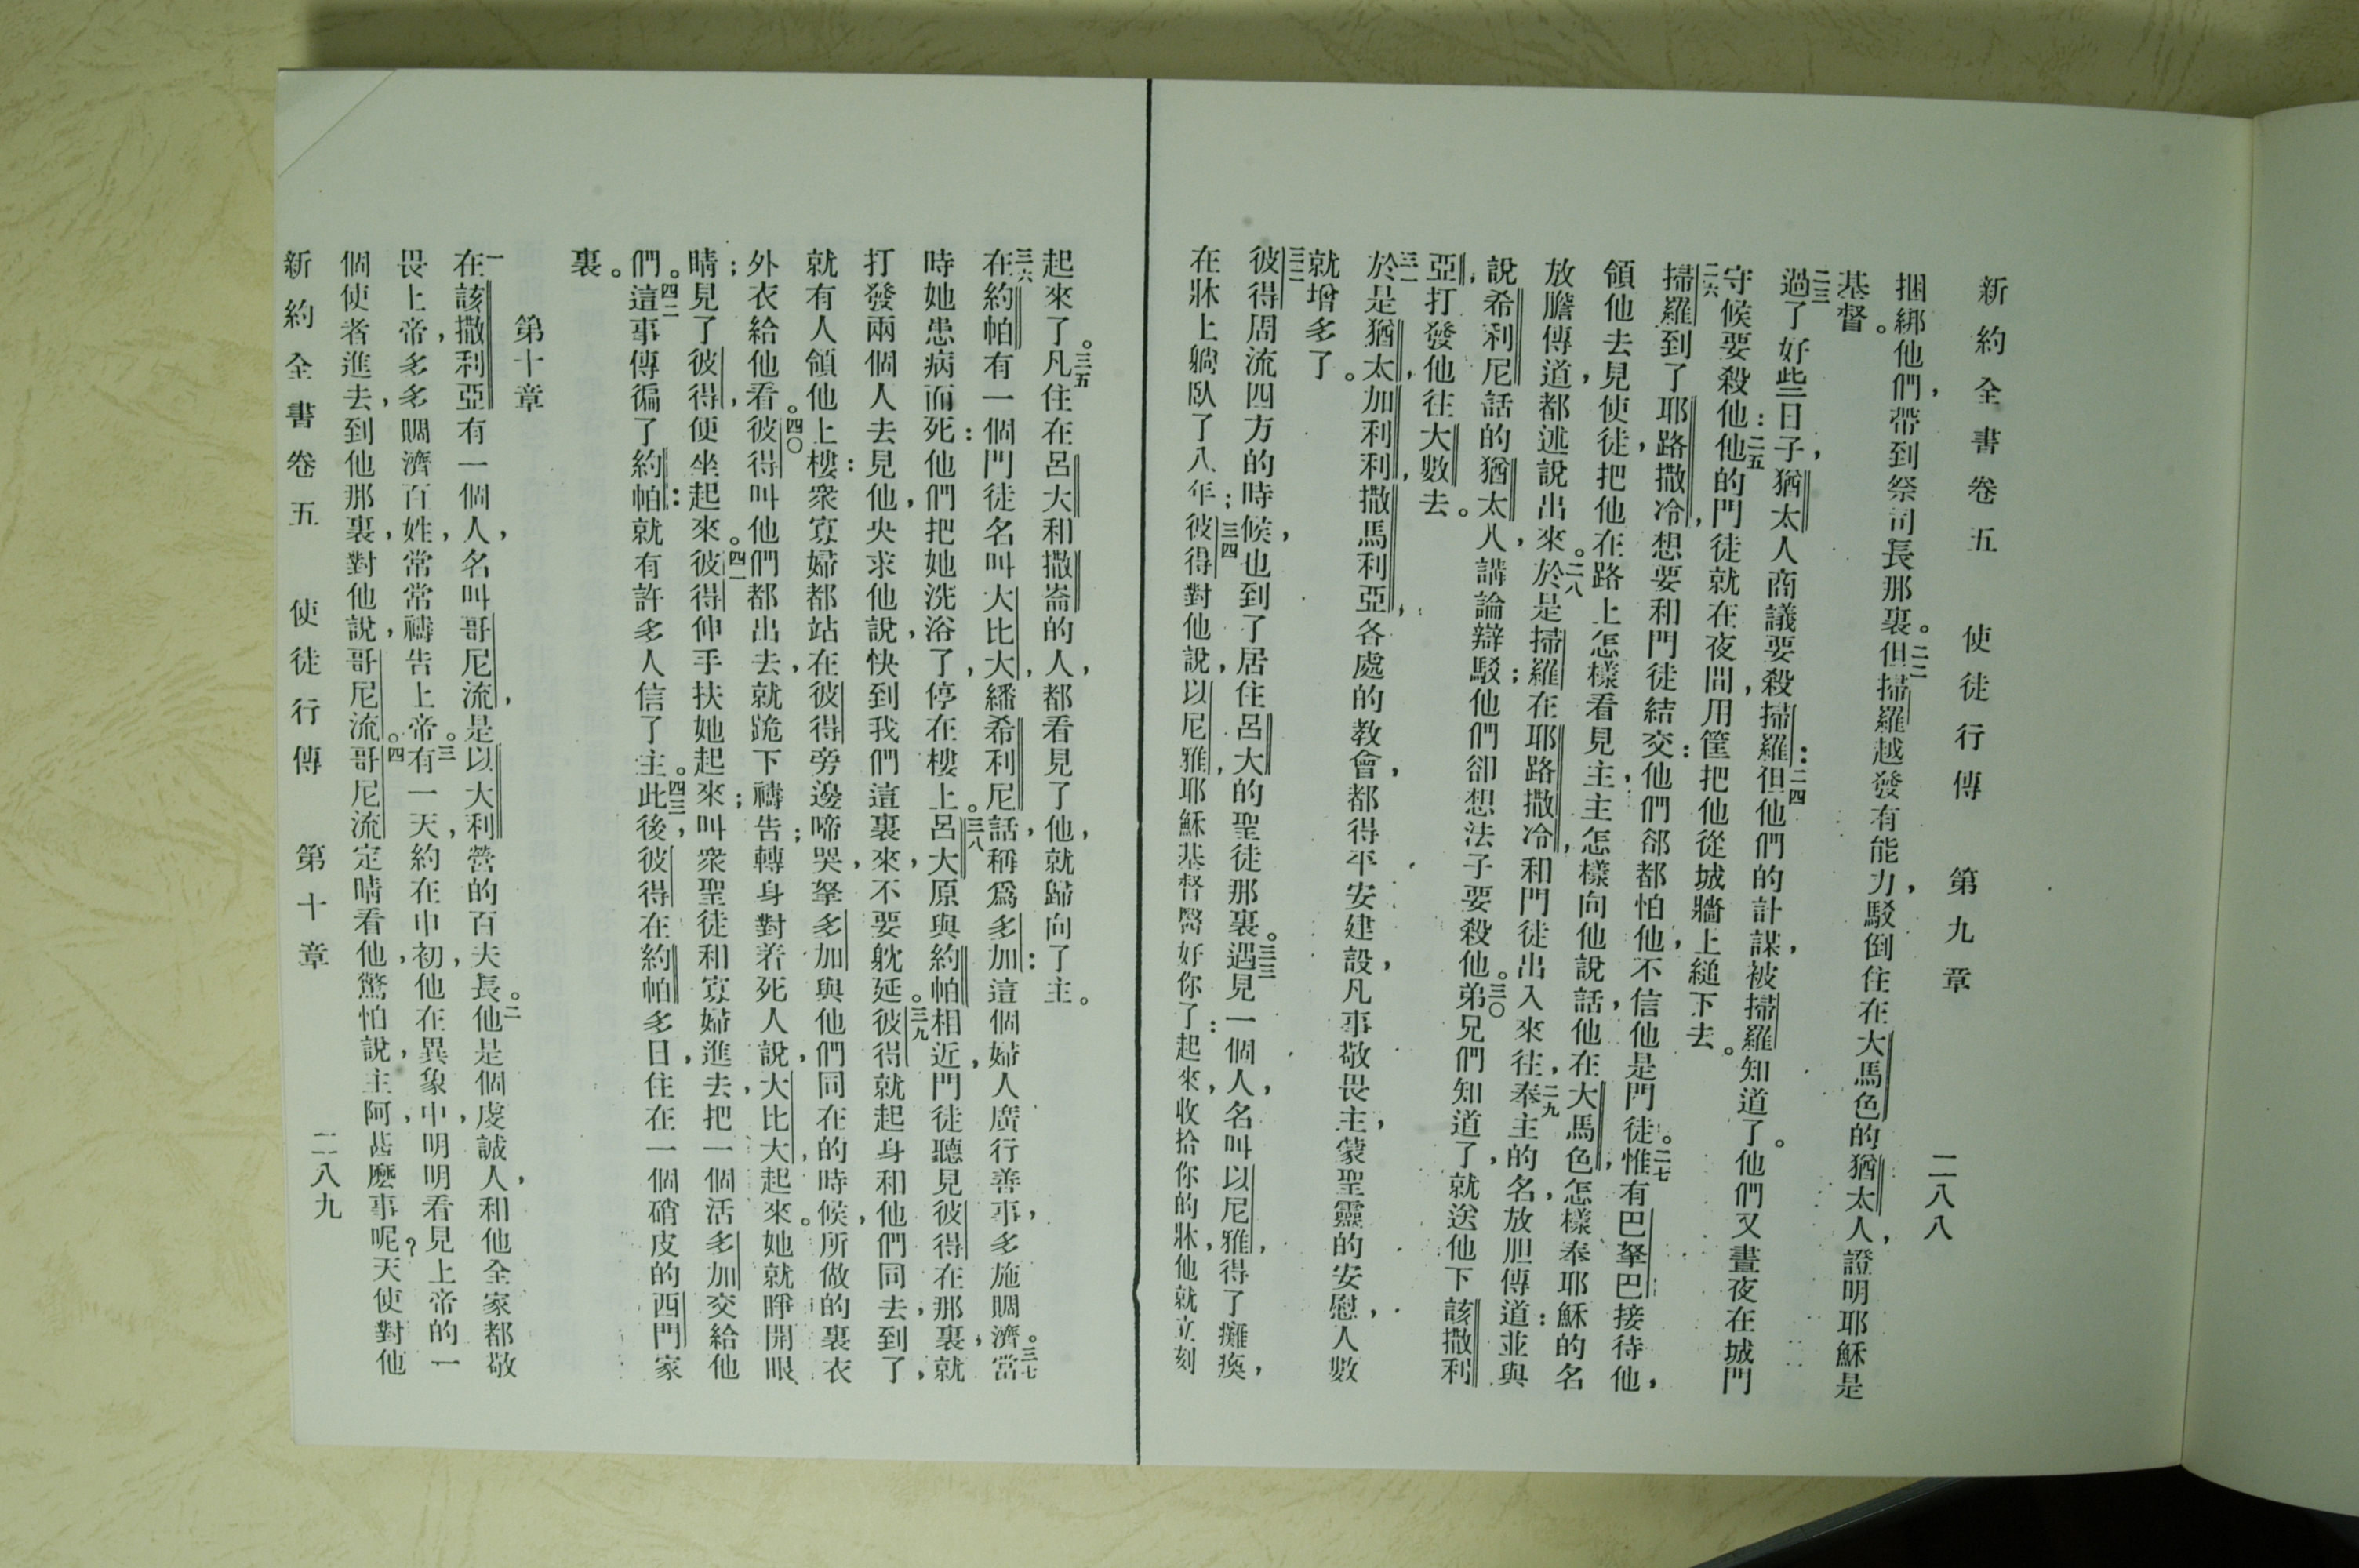 新約全書卷五 使徒行傳 第九章 二八八
捆綁他們，帶到祭司長那裏。二二但掃羅越發有能力，駁倒住在大馬色的猶太人，證明耶穌是
基督。
二三過了好些日子，猶太人商議要殺掃羅：二四但他們的計謀，被掃羅知道了。他們又晝夜在城門
守候要殺他：二五他的門徒就在夜間，用筐把他從城牆上縋下去。
二六掃羅到了耶路撒冷，想要和門徒結交：他們郤都怕他，不信他是門徒。二七惟有巴拏巴接待他，
領他去見使徒，把他在路上怎樣看見主，主怎樣向他說話，他在大馬色，怎樣奉耶穌的名
放膽傳道，都述說出來。二八於是掃羅在耶路撒冷，和門徒出入來往，二九奉主的名，放胆傳道：並與
說希利尼話的猶太人，講論辯駁；他們卻想法子要殺他。三〇弟兄們知道了，就送他下該撒利
亞，打發他往大數去。
三一於是猶太，加利利，撒馬利亞，各處的教會，都得平安建設，凡事敬畏主，蒙聖靈的安慰，人數
就增多了。
三二彼得周流四方的時候，也到了居住呂大的聖徒那裏。三三遇見一個人，名叫以尼雅，得了癱瘓，
在牀上躺臥了八年；三四彼得對他說，以尼雅，耶穌基督醫好你了：起來，收拾你的牀，他就立刻
起來了。三五凡住在呂大和撒崙的人，都看見了他，就歸向了主。
三六在約帕有一個門徒名叫大比大，繙希利尼話，稱爲多加：這個婦人廣行善事，多施賙濟。三七當
時她患病而死：他們把她洗浴了，停在樓上。三八呂大原與約帕相近，門徒聽見彼得在那裏，就
打發兩個人去見他，央求他說，快到我們這裏來，不要躭延。三九彼得就起身和他們同去，到了，
就有人領他上樓：衆寡婦都站在彼得旁邊啼哭，拏多加與他們同在的時候，所做的裏衣
外衣給他看。四〇彼得叫他們都出去，就跪下禱告；轉身對着死人說，大比大，起來。她就睜開眼
睛；見了彼得，便坐起來。四一彼得伸手扶她起來；叫衆聖徒和寡婦進去，把一個活多加交給他
們。四二這事傳徧了約帕：就有許多人信了主。四三此後，彼得在約帕多日，住在一個硝皮的西門家
裏。
第十章
一在該撒利亞有一個人，名叫哥尼流，是以大利營的百夫長。二他是個虔誠人，和他全家都敬
畏上帝，多多賙濟百姓，常常禱告上帝。三有一天，約在申初，他在異象中，明明看見上帝的一
個使者進去，到他那裏，對他說，哥尼流。四哥尼流定睛看他，驚怕說，主阿，甚麼事呢？天使對他
新約全書卷五 使徒行傳 第十章 二八九